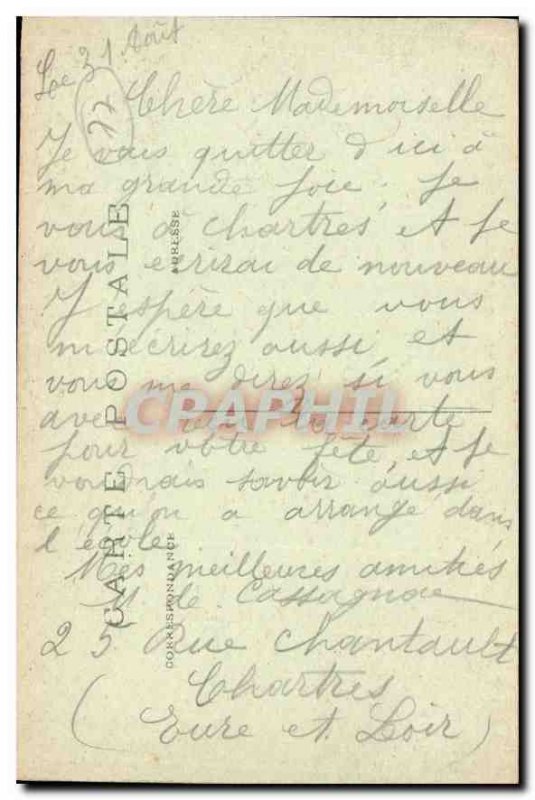 Le 31 Août
22
Chère Mademoiselle
Je vais quitter d'ici à
ma grande joie. Je
vais à Chartres, et Je
vous ecrirai de nouveau
J'espère que vous
m'écrirez aussi, et
vous me direz si vous
avez reçu la carte
pour votre fête, et je
voudrais savoir aussi
ce qu'on a arrange dans
l'école.
Mes meilleures amitiés
M de Cassagnac
25 Rue Chantault
Chartres
(Eure et Loir)
CARTE POSTALE
CORRESPONDANCE
ADRESSE
CPAPHIL